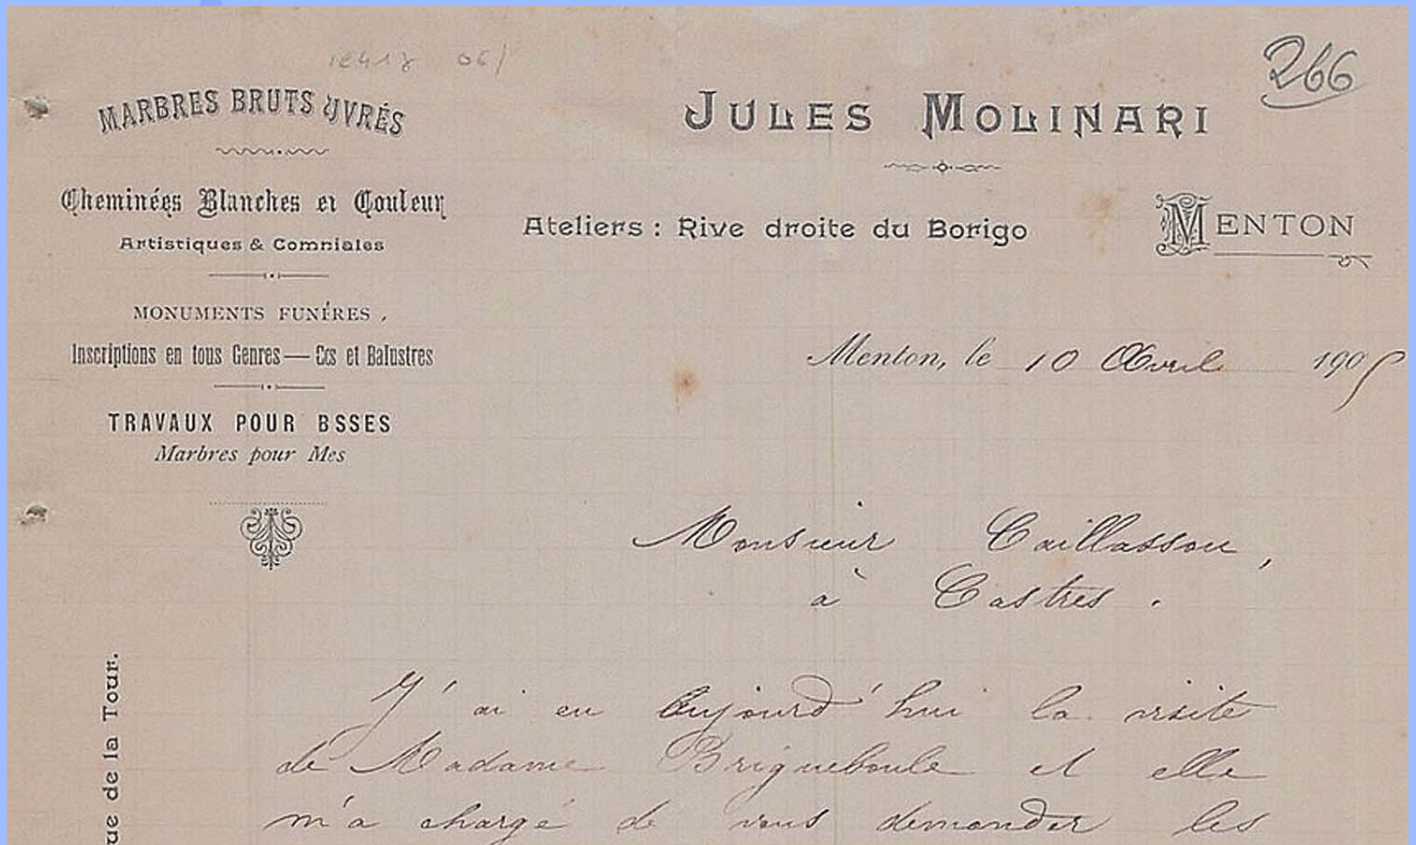 266
MARBRES BRUTS UVRÉS
Cheminées Blanches et Couleur
Artistiques & Comniales
MONUMENTS FUNÉRES,
Inscriptions en tous Genres — Ccs et Balustres
TRAVAUX POUR BSSES
Marbres pour Mes
JULES MOLINARI
Ateliers : Rive droite du Borigo
MENTON
Menton, le 10 Avril 1905
Monsieur Caillassou,
à Castres.
J'ai eu Aujourd'hui la visite
de Madame Brigueboule et elle
m'a chargé de vous demander les
ue de la Tour.